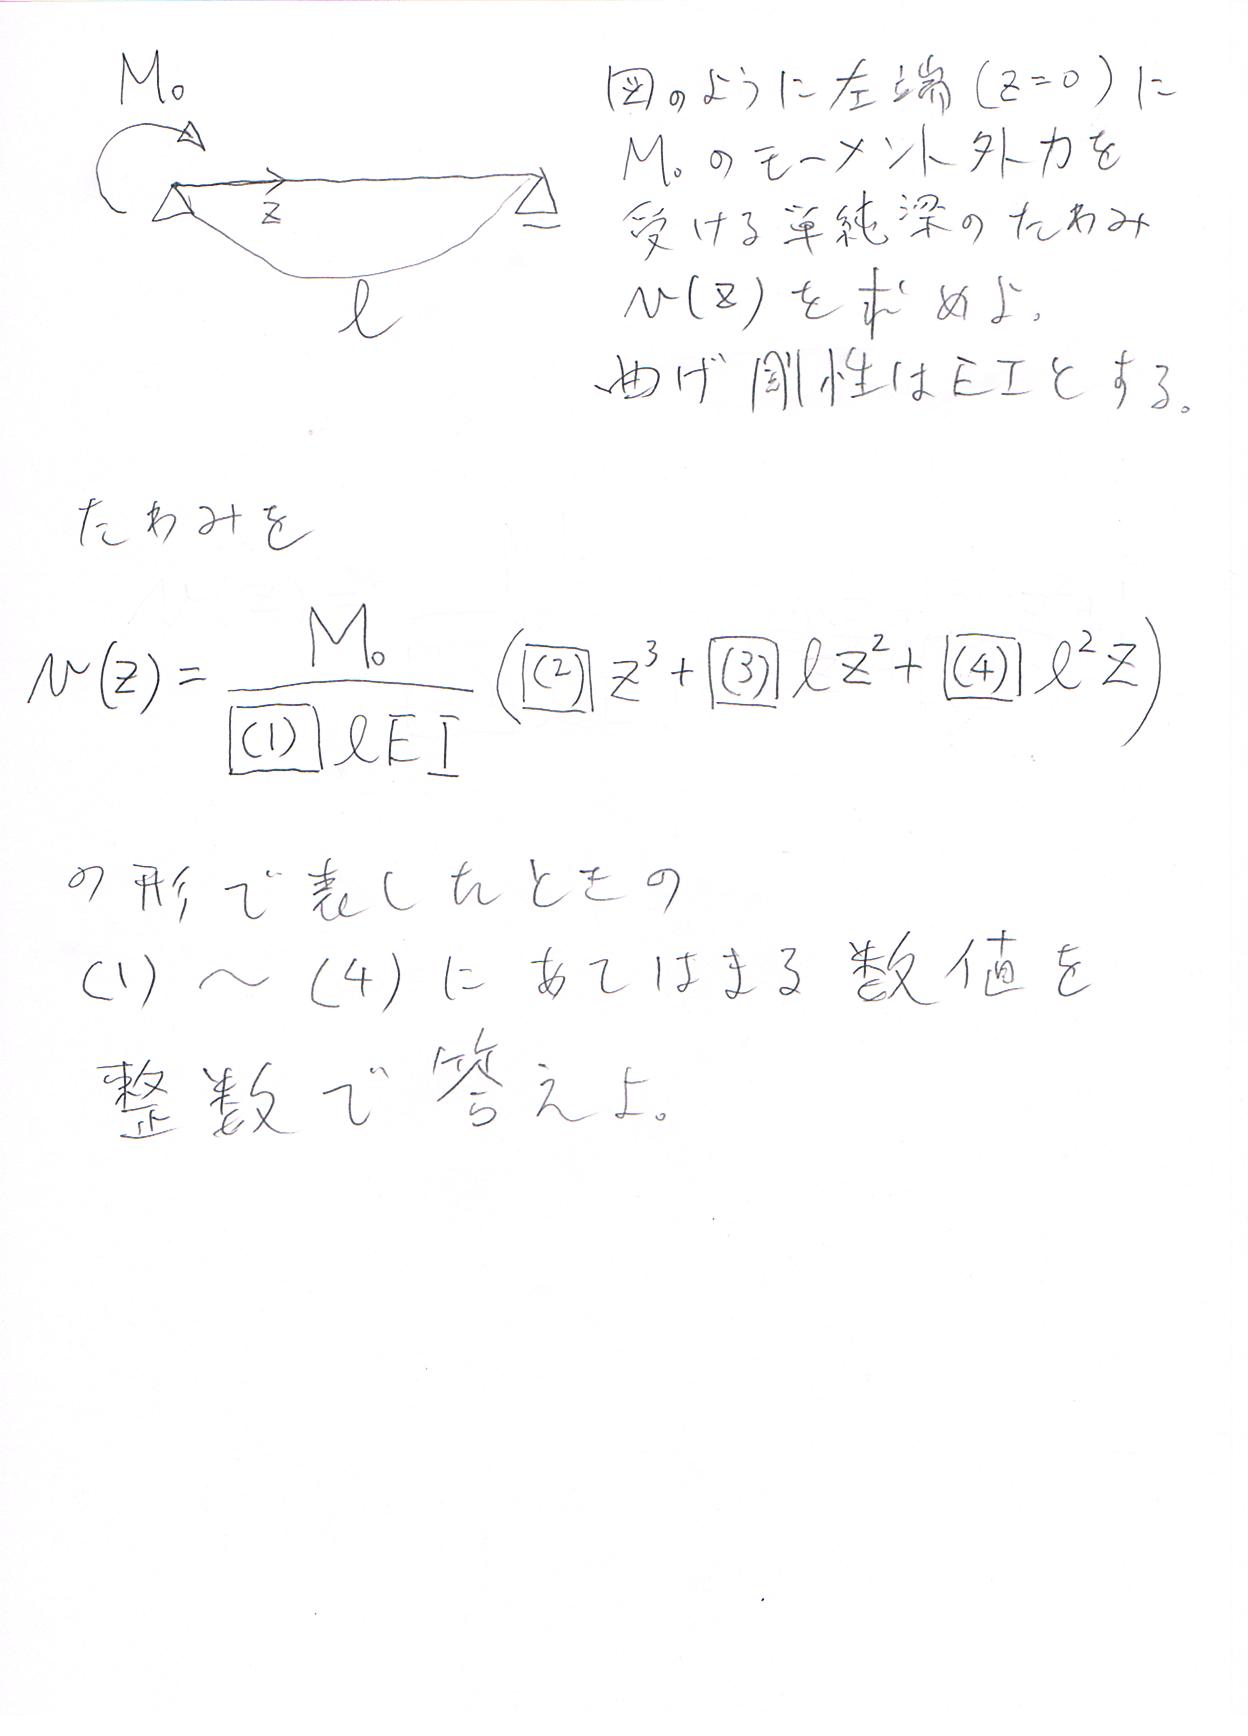 M₀
z
l
図のように左端(z=0)に
M₀のモーメント外力を
受ける単純梁のたわみ
v(z)を求めよ。
曲げ剛性はEIとする。
たわみを
v(z) = M₀ / ((1) l E I) ((2) z³ + (3) l z² + (4) l² z)
の形で表したときの
(1)～(4)にあてはまる数値を
整数で答えよ。